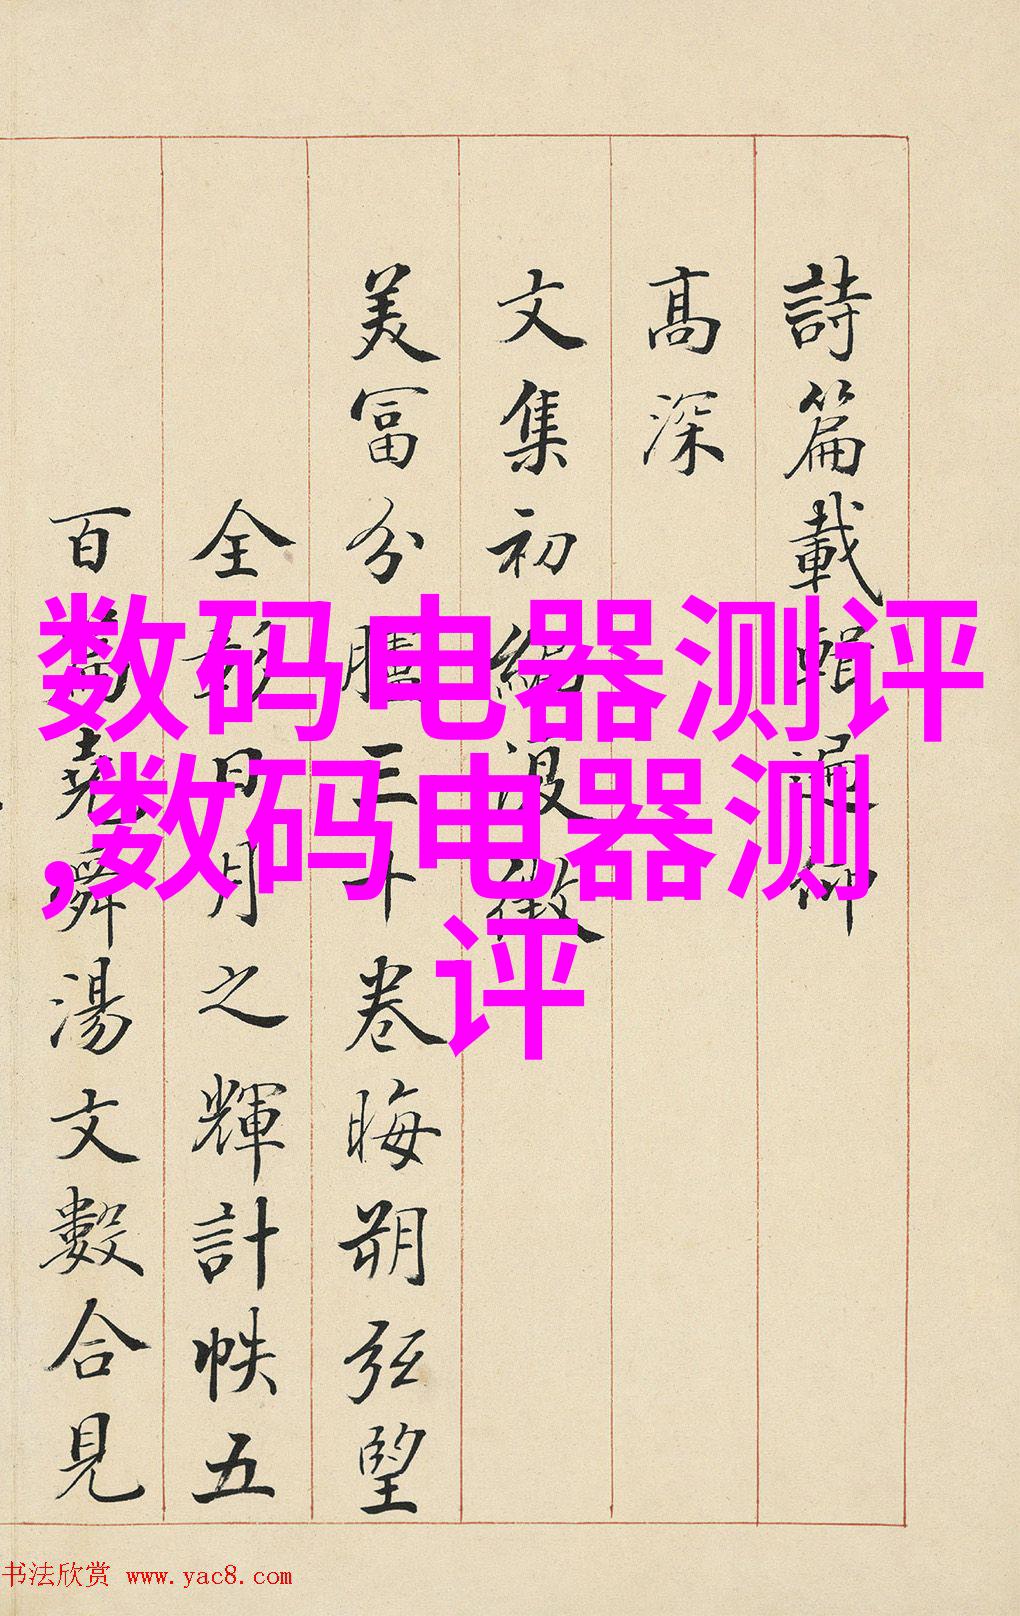 詩篇載輯遍仰
高深
文集初編復徵
美富分臚三十卷晦朔弦望
全彰日月之輝計帙五
百篇堯舜湯文數合見
数码电器测评
,数码电器测
评
书法欣赏 www.yac8.com